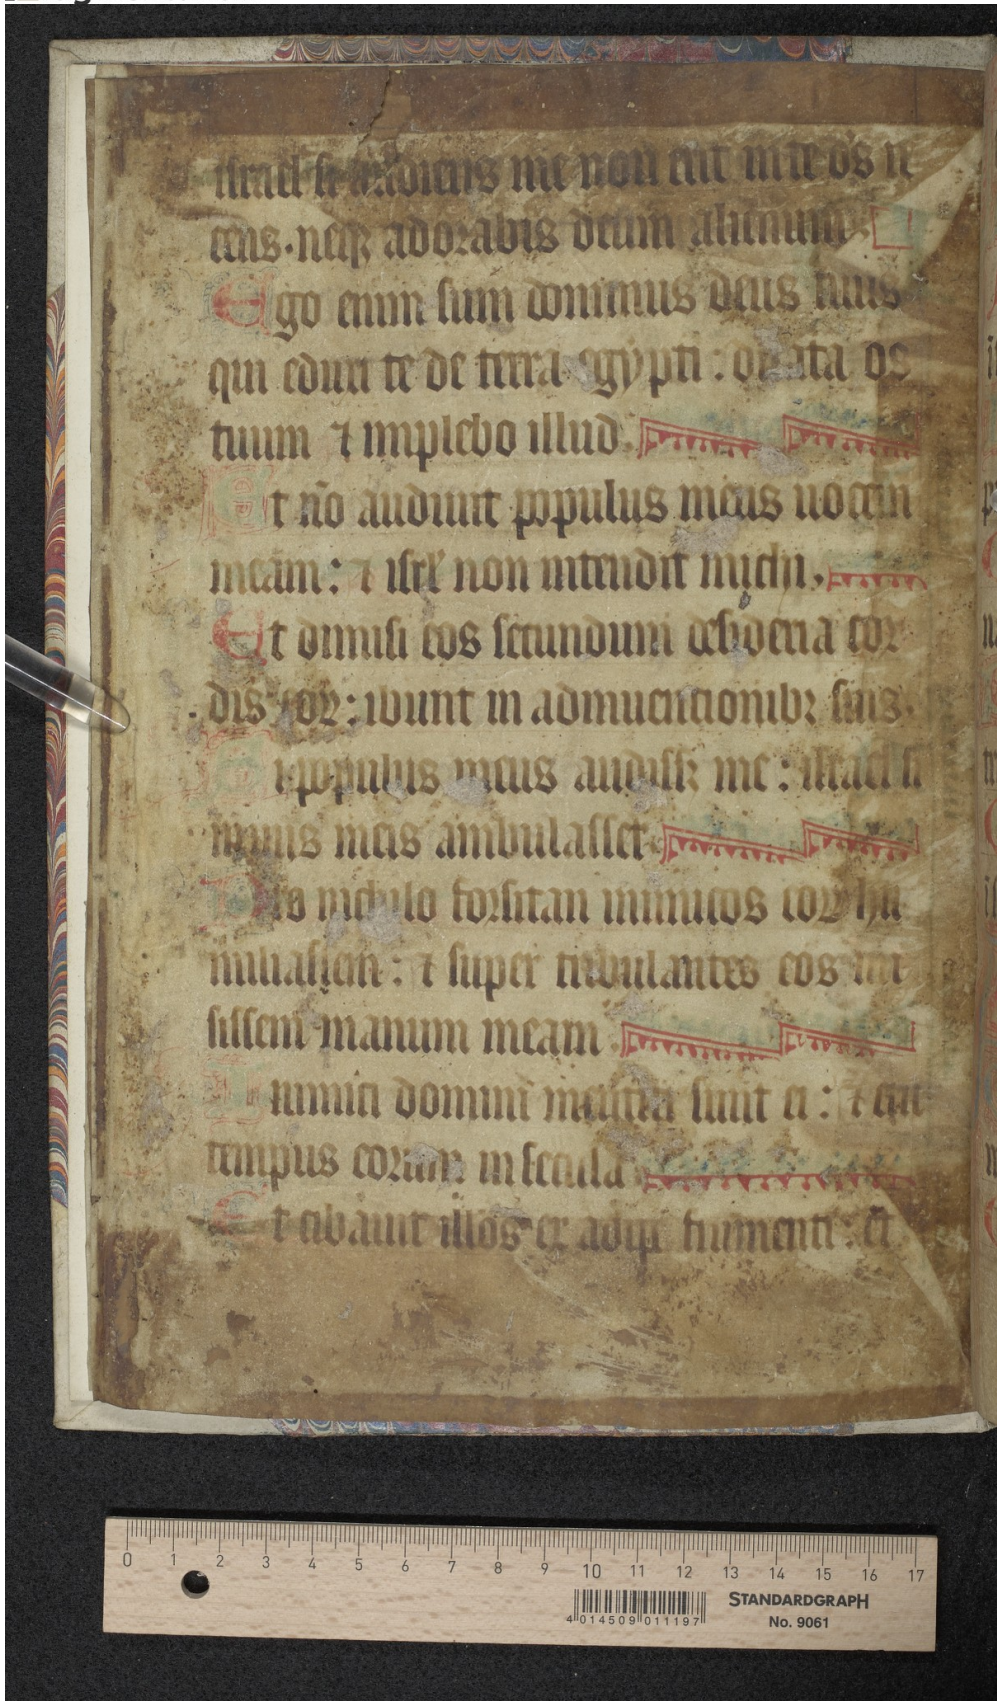 israel si audieris me non erit in te deus re
cens. neqꝫ adorabis deum alienum.
Ego enim sum dominus deus tuus
qui eduxi te de terra egypti: dilata os
tuum ⁊ implebo illud.
Et nō audiuit populus meus uocem
meam: ⁊ isrl̄ non intendit michi.
Et dimisi eos secundum desideria cor
dis eoꝝ: ibunt in adinuentionibꝫ suis.
Si populus meus audisset me: israel si
in uiis meis ambulasset
Pro nichilo forsitan inimicos eoꝝ hu
miliassem: ⁊ super tribulantes eos mi
sissem manum meam
Inimici domini mentiti sunt ei: ⁊ erit
tempus eorum in secula
Et cibauit illos ex adipe frumenti: et
0 1 2 3 4 5 6 7 8 9 10 11 12 13 14 15 16 17
STANDARDGRAPH
No. 9061
4 014509 011197